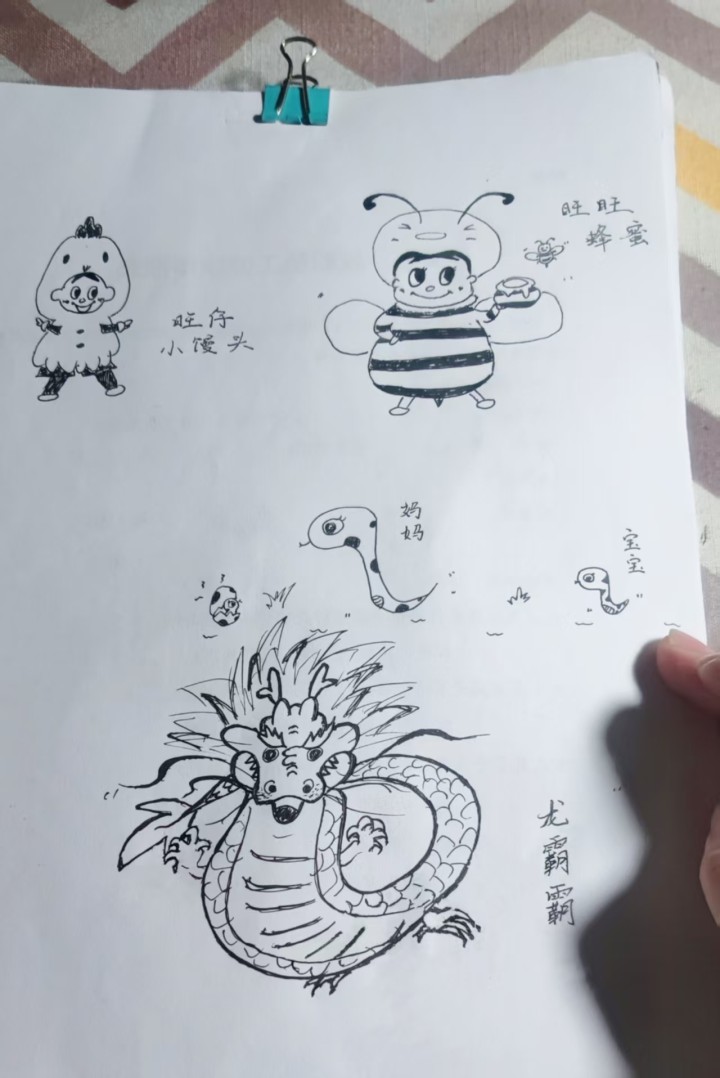 旺旺
蜂蜜
旺仔
小馒头
妈
妈
宝
宝
龙
霸
霸